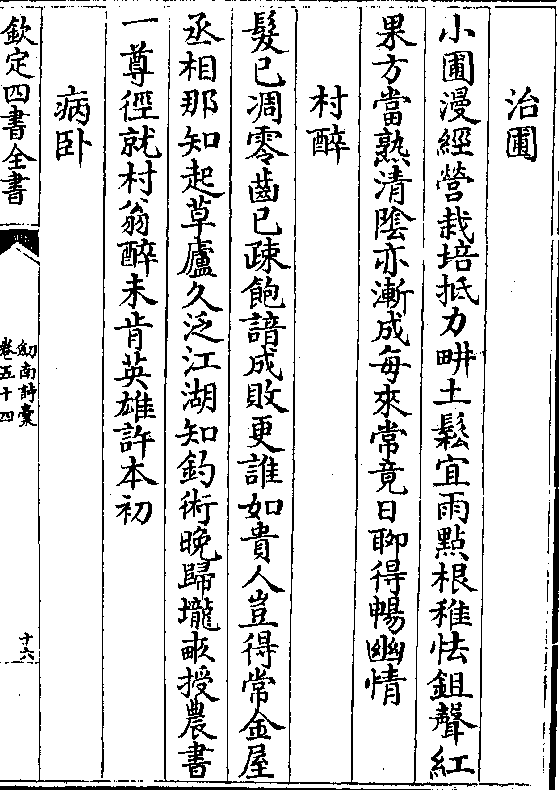 治圃
小圃漫經營栽培抵力畊土鬆宜雨點根稚怯鉏聲紅
果方當熟清陰亦漸成每來常竟日聊得暢幽情
村醉
髮已凋零齒已疎飽諳成敗更誰如貴人豈得常金屋
丞相那知起草廬久泛江湖知釣術晚歸壠畝授農書
一尊徑就村翁醉未肯英雄許本初
病卧
欽定四書全書
劒南詩稾
卷五十四
十六